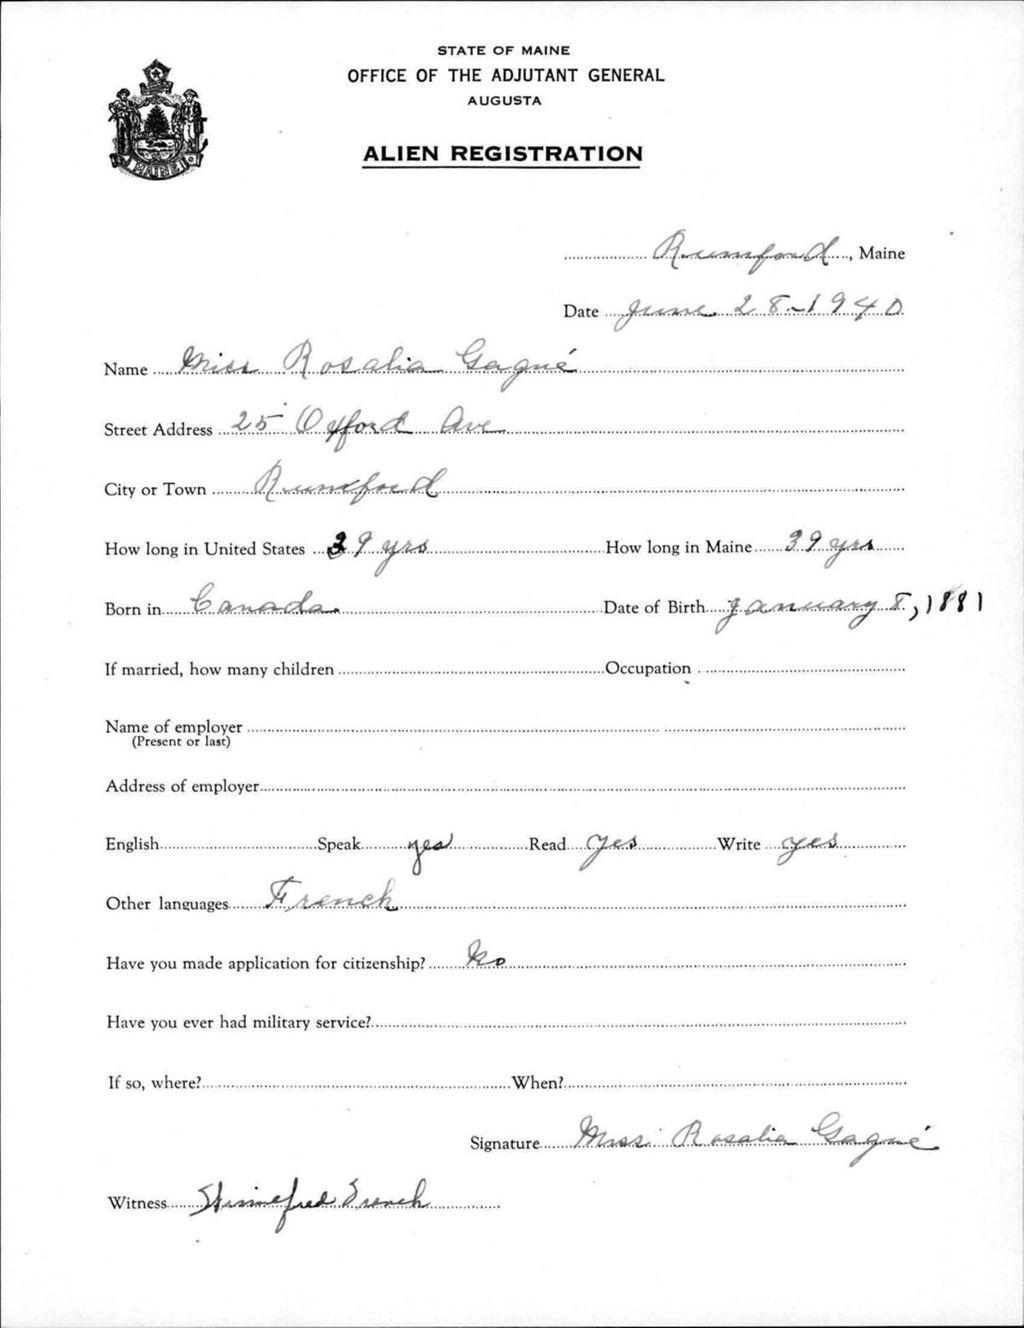 STATE OF MAINE
OFFICE OF THE ADJUTANT GENERAL
AUGUSTA
ALIEN REGISTRATION
MAINE
Rumford, Maine
Date June 28-1940
Name Miss Rosalia Gagné
Street Address 25 Oxford Ave
City or Town Rumford
How long in United States 39 yrs How long in Maine 39 yrs
Born in Canada Date of Birth January 8, 1881
If married, how many children Occupation
Name of employer
(Present or last)
Address of employer
English Speak yes Read yes Write yes
Other languages French
Have you made application for citizenship? No
Have you ever had military service?
If so, where? When?
Signature Miss Rosalia Gagné
Witness Winnefred French